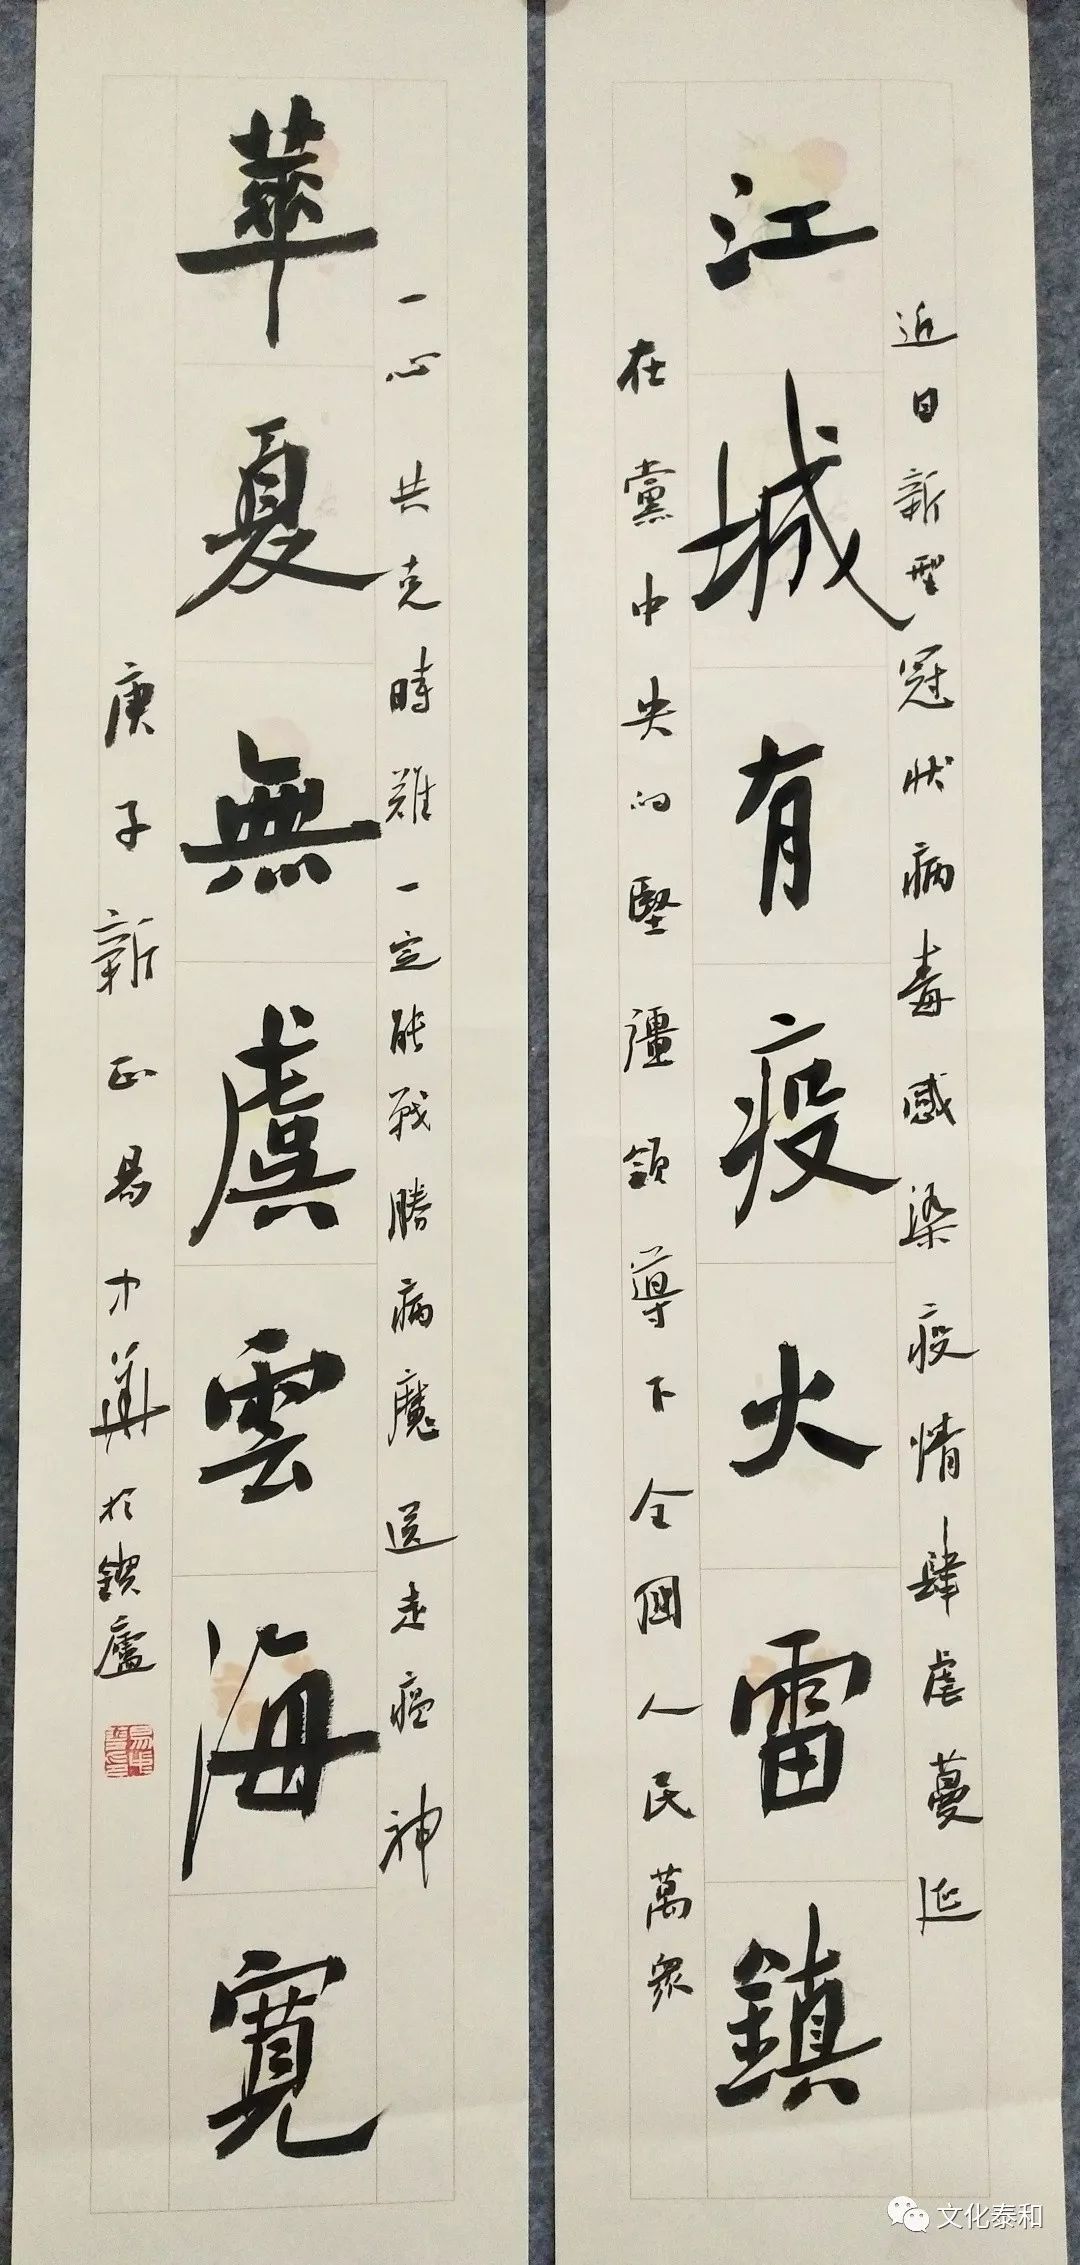 近日新型冠狀病毒感染疫情肆虐蔓延
江城有疫火雷鎮
在黨中央的堅彊領導下全國人民萬眾
一心共克時難一定能戰勝病魔送走瘟神
華夏無虞雲海寬
庚子新正易才華於廬
文化泰和